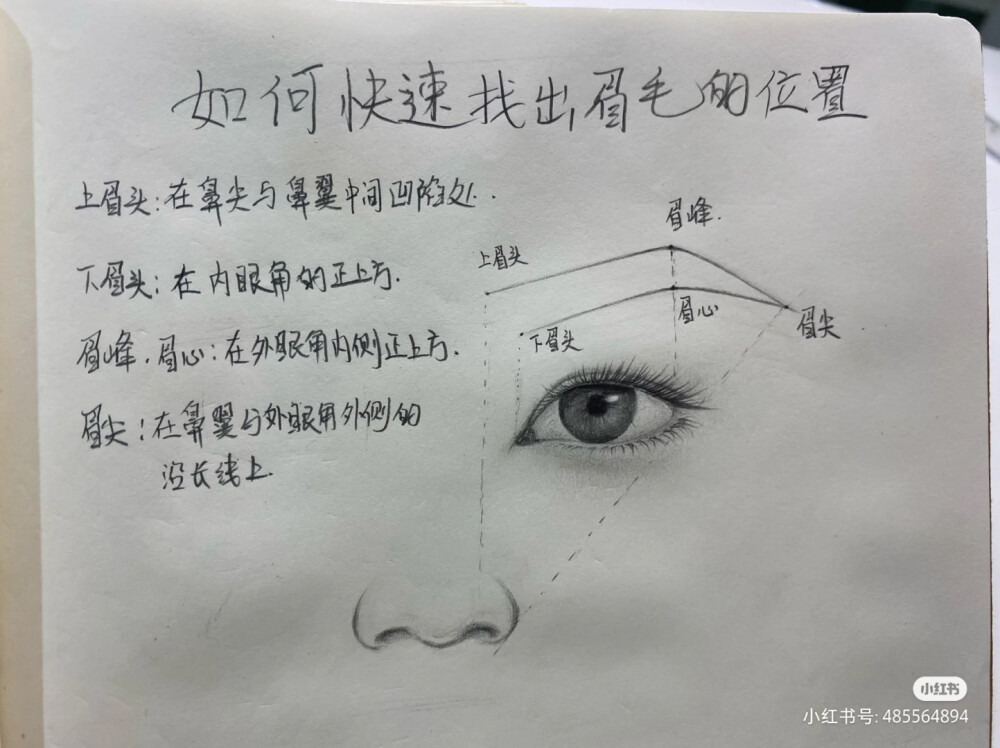 如何快速找出眉毛的位置
上眉头:在鼻尖与鼻翼中间凹陷处.
下眉头:在内眼角的正上方.
眉峰.眉心:在外眼角内侧正上方.
眉尖:在鼻翼与外眼角外侧的
沿长线上.
眉峰.
上眉头
眉心
眉尖
下眉头
小红书
小红书号: 485564894